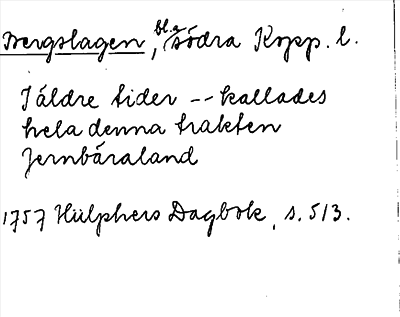 Bergslagen, bl.a. södra Kopp. l.
I äldre tider -- kallades
hela denna trakten
Jernbäraland
1757 Hülphers Dagbok, s. 513.